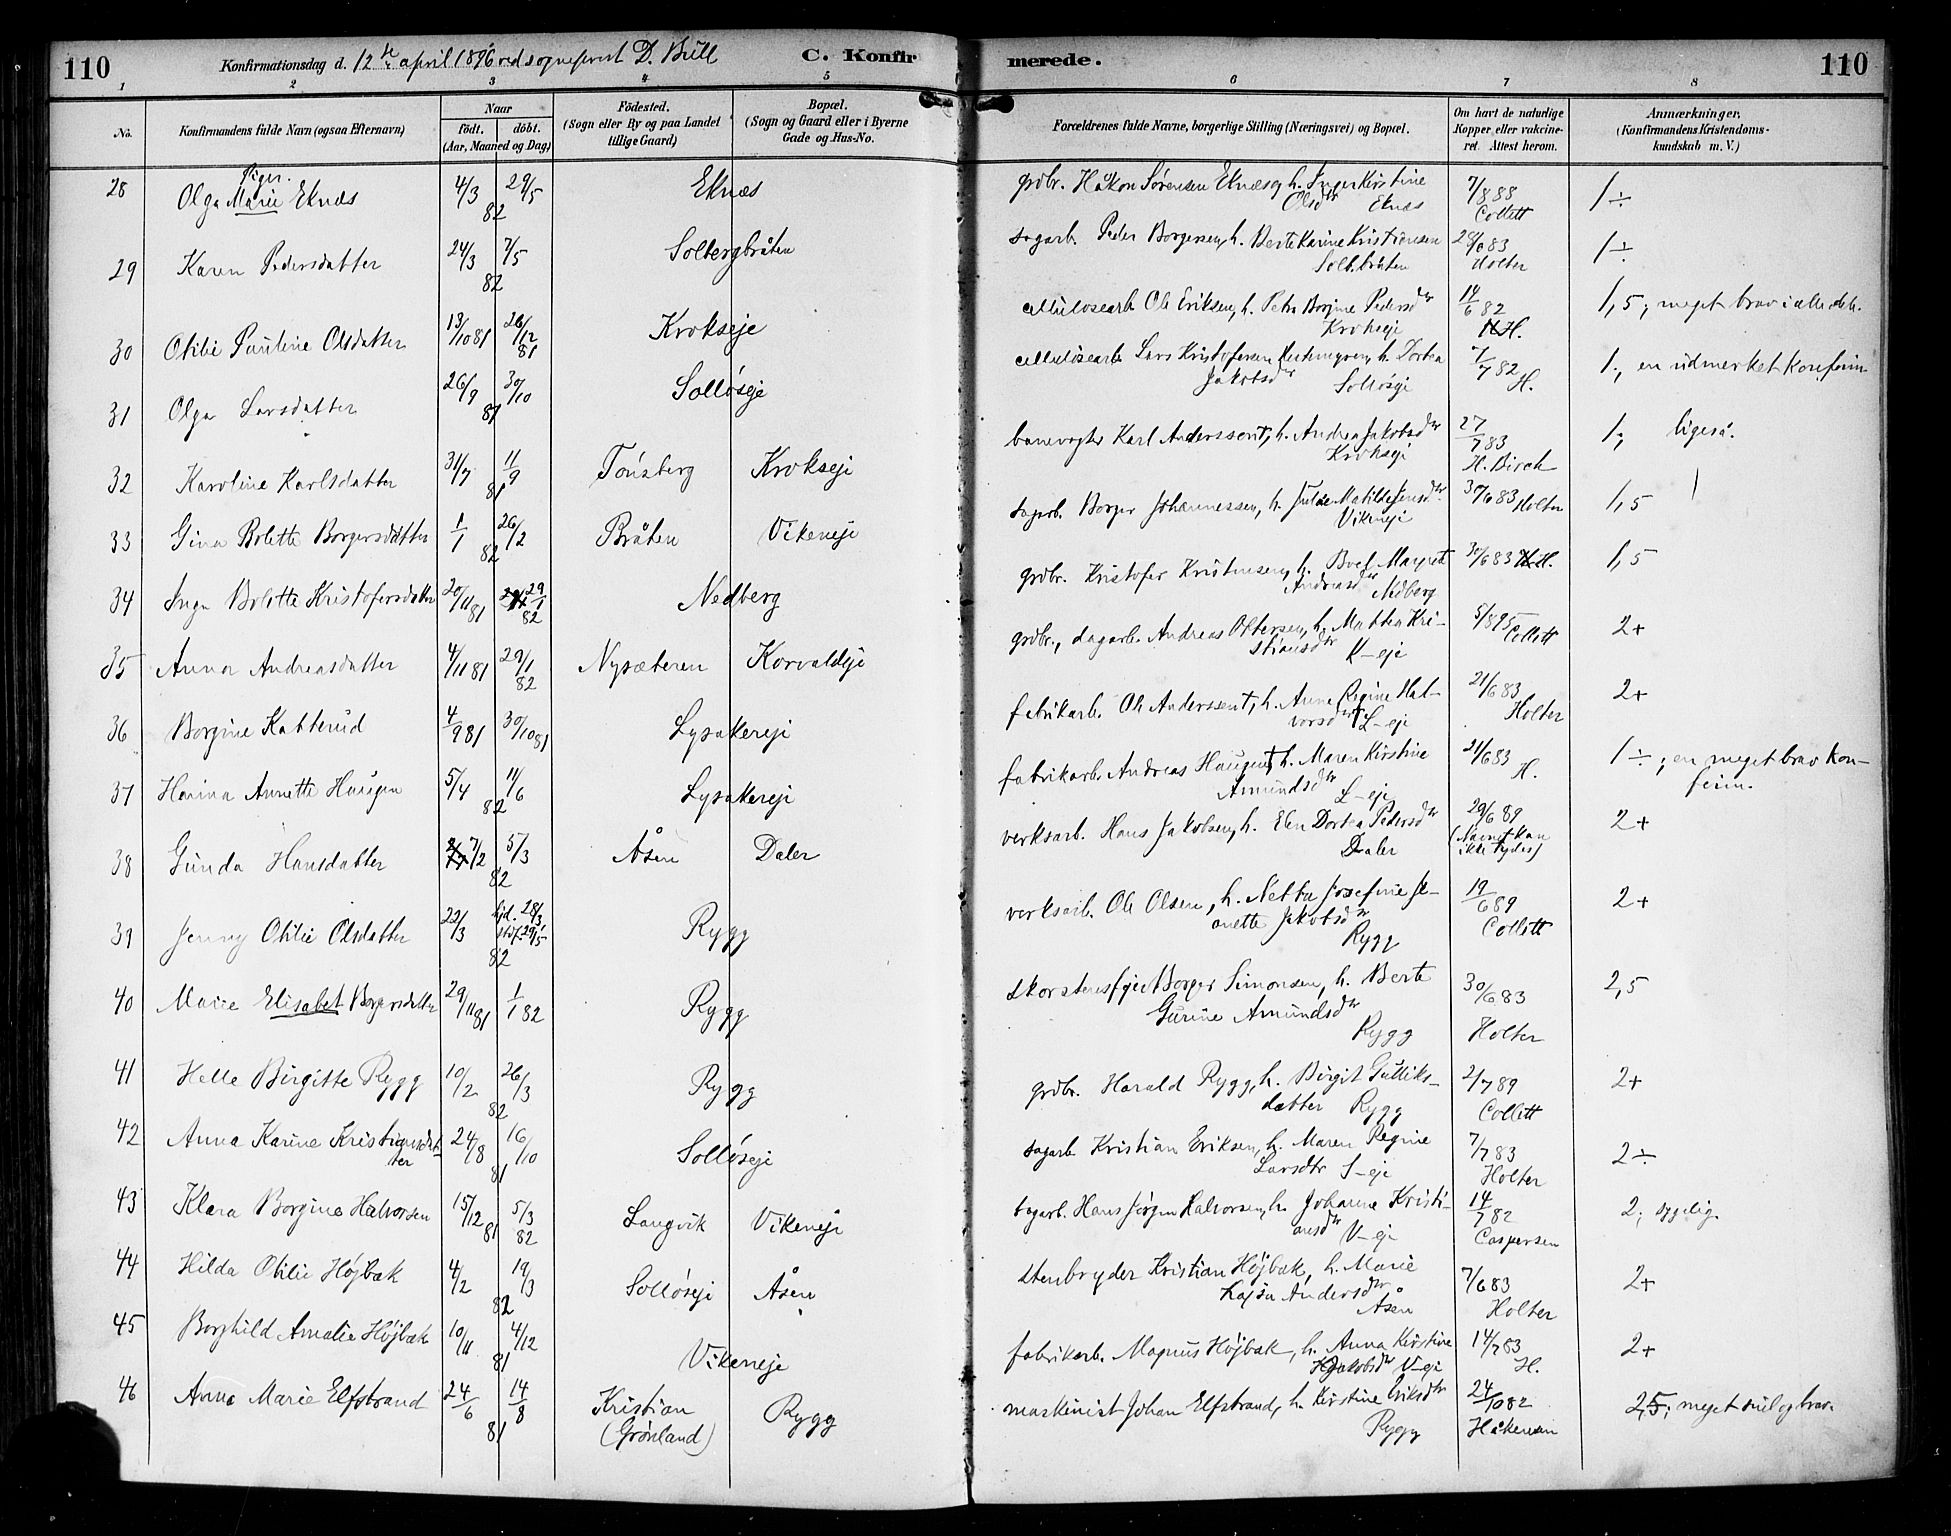 110 Konfirmationsdag d. 12te april 1896 ved sogneprest D. Bull C. Konfirmerede. 110
1 2 3 4 5 6 7 8
No. Konfirmandens fulde Navn (ogsaa Efternavn) Naar født. døbt. (Aar, Maaned og Dag) Fødested. (Sogn eller By og paa Landet tillige Gaard) Bopæl. (Sogn og Gaard eller i Byerne Gade og Hus-No. Forældrenes fulde Navne, borgerlige Stilling (Næringsvei) og Bopæl. Om havt de naturlige Kopper eller vakcineret. Attest herom. Anmærkninger. (Konfirmandens Kristendomskundskab m. V.)
Piger.
28 Olga Marie Eknæs 4/3 82 29/5 Eknæs grdbr. Håkon Sørensen Eknæs og h. Inger Kirstine Olsdtr Eknæs 7/8 88 Collett 1÷
29 Karen Pedersdatter 24/3 82 7/5 Solbergbråten sagarb. Peder Borgersen, h. Berte Karine Kristiansen Solb.bråten 28/6 83 Holter 1÷
30 Otilie Pauline Olsdatter 13/10 81 26/12 81 Krokseje cellulosearb. Ole Eriksen, h. Petra Borgine Pedersdtr Krokseje 14/6 82 H. 1,5; meget brav i alle dele.
31 Olga Larsdatter 26/9 81 30/10 Solløseje cellulosearb. Lars Kristofersen, h. Dortea Jakobsdtr Solløseje 7/7 82 H. 1; en udmerket konfirm.
32 Karoline Karlsdatter 31/7 81 11/9 Tønsberg Krokseje banevogter Karl Anderssen†, h. Andrea Jakobsdtr Krokseje 27/7 83 H. Birch 1; ligeså.
33 Gina Bolette Borgersdatter 1/1 82 26/2 Bråten Vikeneje sagarb. Borger Johannessen, h. Julie Matilde Jensdtr. Vikeneje 30/6 83 Holter 1,5
34 Inga Bolette Kristofersdatter 20/11 81 29/1 82 Nedberg grdbr. Kristofer Kristensen, h. Boel Margrete Andreasdtr Nedberg 30/6 83 H. 1,5
35 Anna Andreasdatter 4/11 81 29/1 82 Nysæteren Korvaldeje grdbr., dagarb. Andreas Ottersen, h. Mathea Kristiansdtr K-eje 5/8 95 Collett 2+
36 Borgine Katterud 4/9 81 30/10 81 Lysakereje fabrikarb. Ole Anderssen†, h. Anne Regine Halvorsdtr† L-eje 21/6 83 Holter 2+
37 Hanna Annette Haugen 5/4 82 11/6 Lysakereje fabrikarb. Andreas Haugen†, h. Maren Kirstine Amundsdtr L-eje 21/6 83 H. 1÷; en meget brav konfirm.
38 Gunda Hansdatter 7/2 82 5/3 Åsen Daler verksarb. Hans Jakobsen, h. Elen Dortea Pedersdtr Daler 29/6 89 (Navnet kan ikke tydes) 2+
39 Jenny Otilie Olsdatter 22/3 82 hjd. 28/3 stdf. 29/5 Rygg verksarb. Ole Olsen, h. Netta Josefine Jeanette Jakobsdtr Rygg 19/6 89 Collett 2+
40 Marie Elisabet Borgersdatter 29/11 81 1/1 82 Rygg skorstensfejer Borger Simonsen, h. Berte Gurine Amundsdtr Rygg 30/6 83 Holter 2,5
41 Helle Birgitte Rygg 10/2 82 26/3 Rygg grdbr. Harald Rygg, h. Birgit Gulliksdatter Rygg 2/7 89 Collett 2+
42 Anna Karine Kristiansdatter 24/8 81 16/10 Solløseje sagarb. Kristian Eriksen, h. Maren Regine Larsdtr S-eje 7/7 83 Holter 2÷
43 Klara Borgine Halvorsen 15/12 81 5/3 82 Langvik Vikeneje sagarb. Hans Jørgen Halvorsen, h. Johanne Kristiansdtr V-eje 14/7 82 Caspersen 2; sygelig.
44 Hilda Otilie Højbak 4/2 82 19/3 Solløseje Åsen stenbryder Kristian Højbak, h. Marie Lajsa Andersdtr Åsen 7/6 83 Holter 2+
45 Borghild Amalie Højbak 10/11 81 4/12 Vikeneje fabrikarb. Magnus Højbak, h. Anna Kirstine Jakobsdtr V-eje 14/7 83 H. 2+
46 Anna Marie Elfstrand 24/6 81 14/8 Kristian (Grønland) Rygg maskinist Johan Elfstrand, h. Kirstine Eriksdtr Rygg 24/10 82 Håkensen 2,5; meget snil og brav.